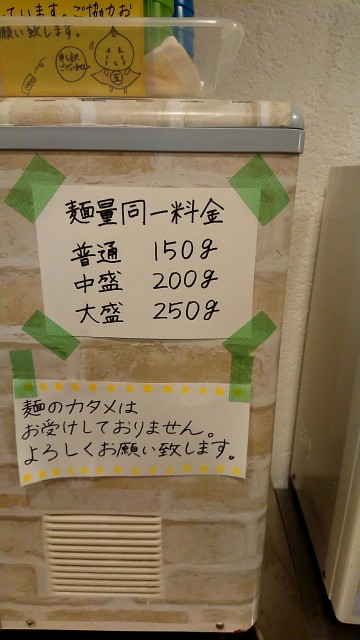 ています。ご協力お
願い致します。
申し訳
ございません
麺量同一料金
普通 150g
中盛 200g
大盛 250g
麺のカタメは
お受けしておりません。
よろしくお願い致します。